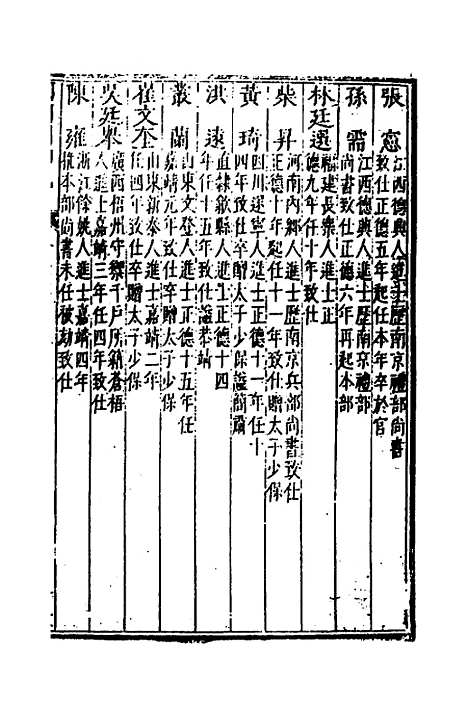 張㤙 江西德興人進士歷南京禮部尚書
致仕正德五年起任本年卒於官
孫需 江西德興人進士歷南京禮部
尚書致仕正德六年再起本部
林廷選 福建長樂人進士正
德九年任十年致仕
柴昇 河南內鄉人進士歷南京兵部尚書致仕
正德十年起任十一年致仕贈太子少保
黃琦 四川遂寧人進士正德十一年任十
四年致仕卒贈太子少保謚簡肅
洪遠 直隸歙縣人進士正德十四
年任十五年致仕謚恭靖
叢蘭 山東文登人進士正德十五年任
嘉靖元年致仕卒贈太子少保
崔文奎 山東新泰人進士嘉靖二年
任四年致仕卒贈太子少保
吳廷舉 廣西梧州守禦千戶所籍蒼梧
人進士嘉靖三年任四年致仕
陳雍 浙江餘姚人進士嘉靖四年
推本部尚書未任被劾致仕